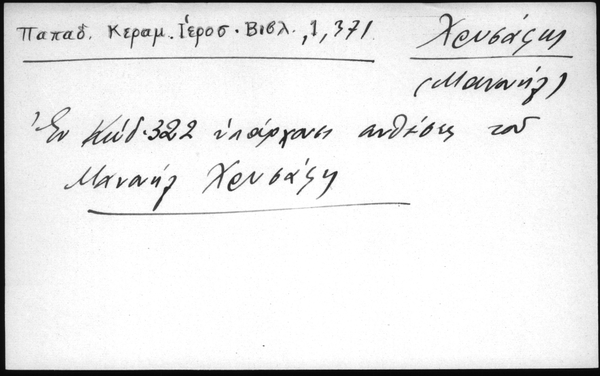 Παπαδ. Κεραμ. Ἱεροσ. Βιβλ. ,1, 371.
Χρυσάφης
(Μανουήλ)
Ἐν Κώδ. 322 ὑπάρχουσι συνθέσεις τοῦ
Μανουήλ Χρυσάφη